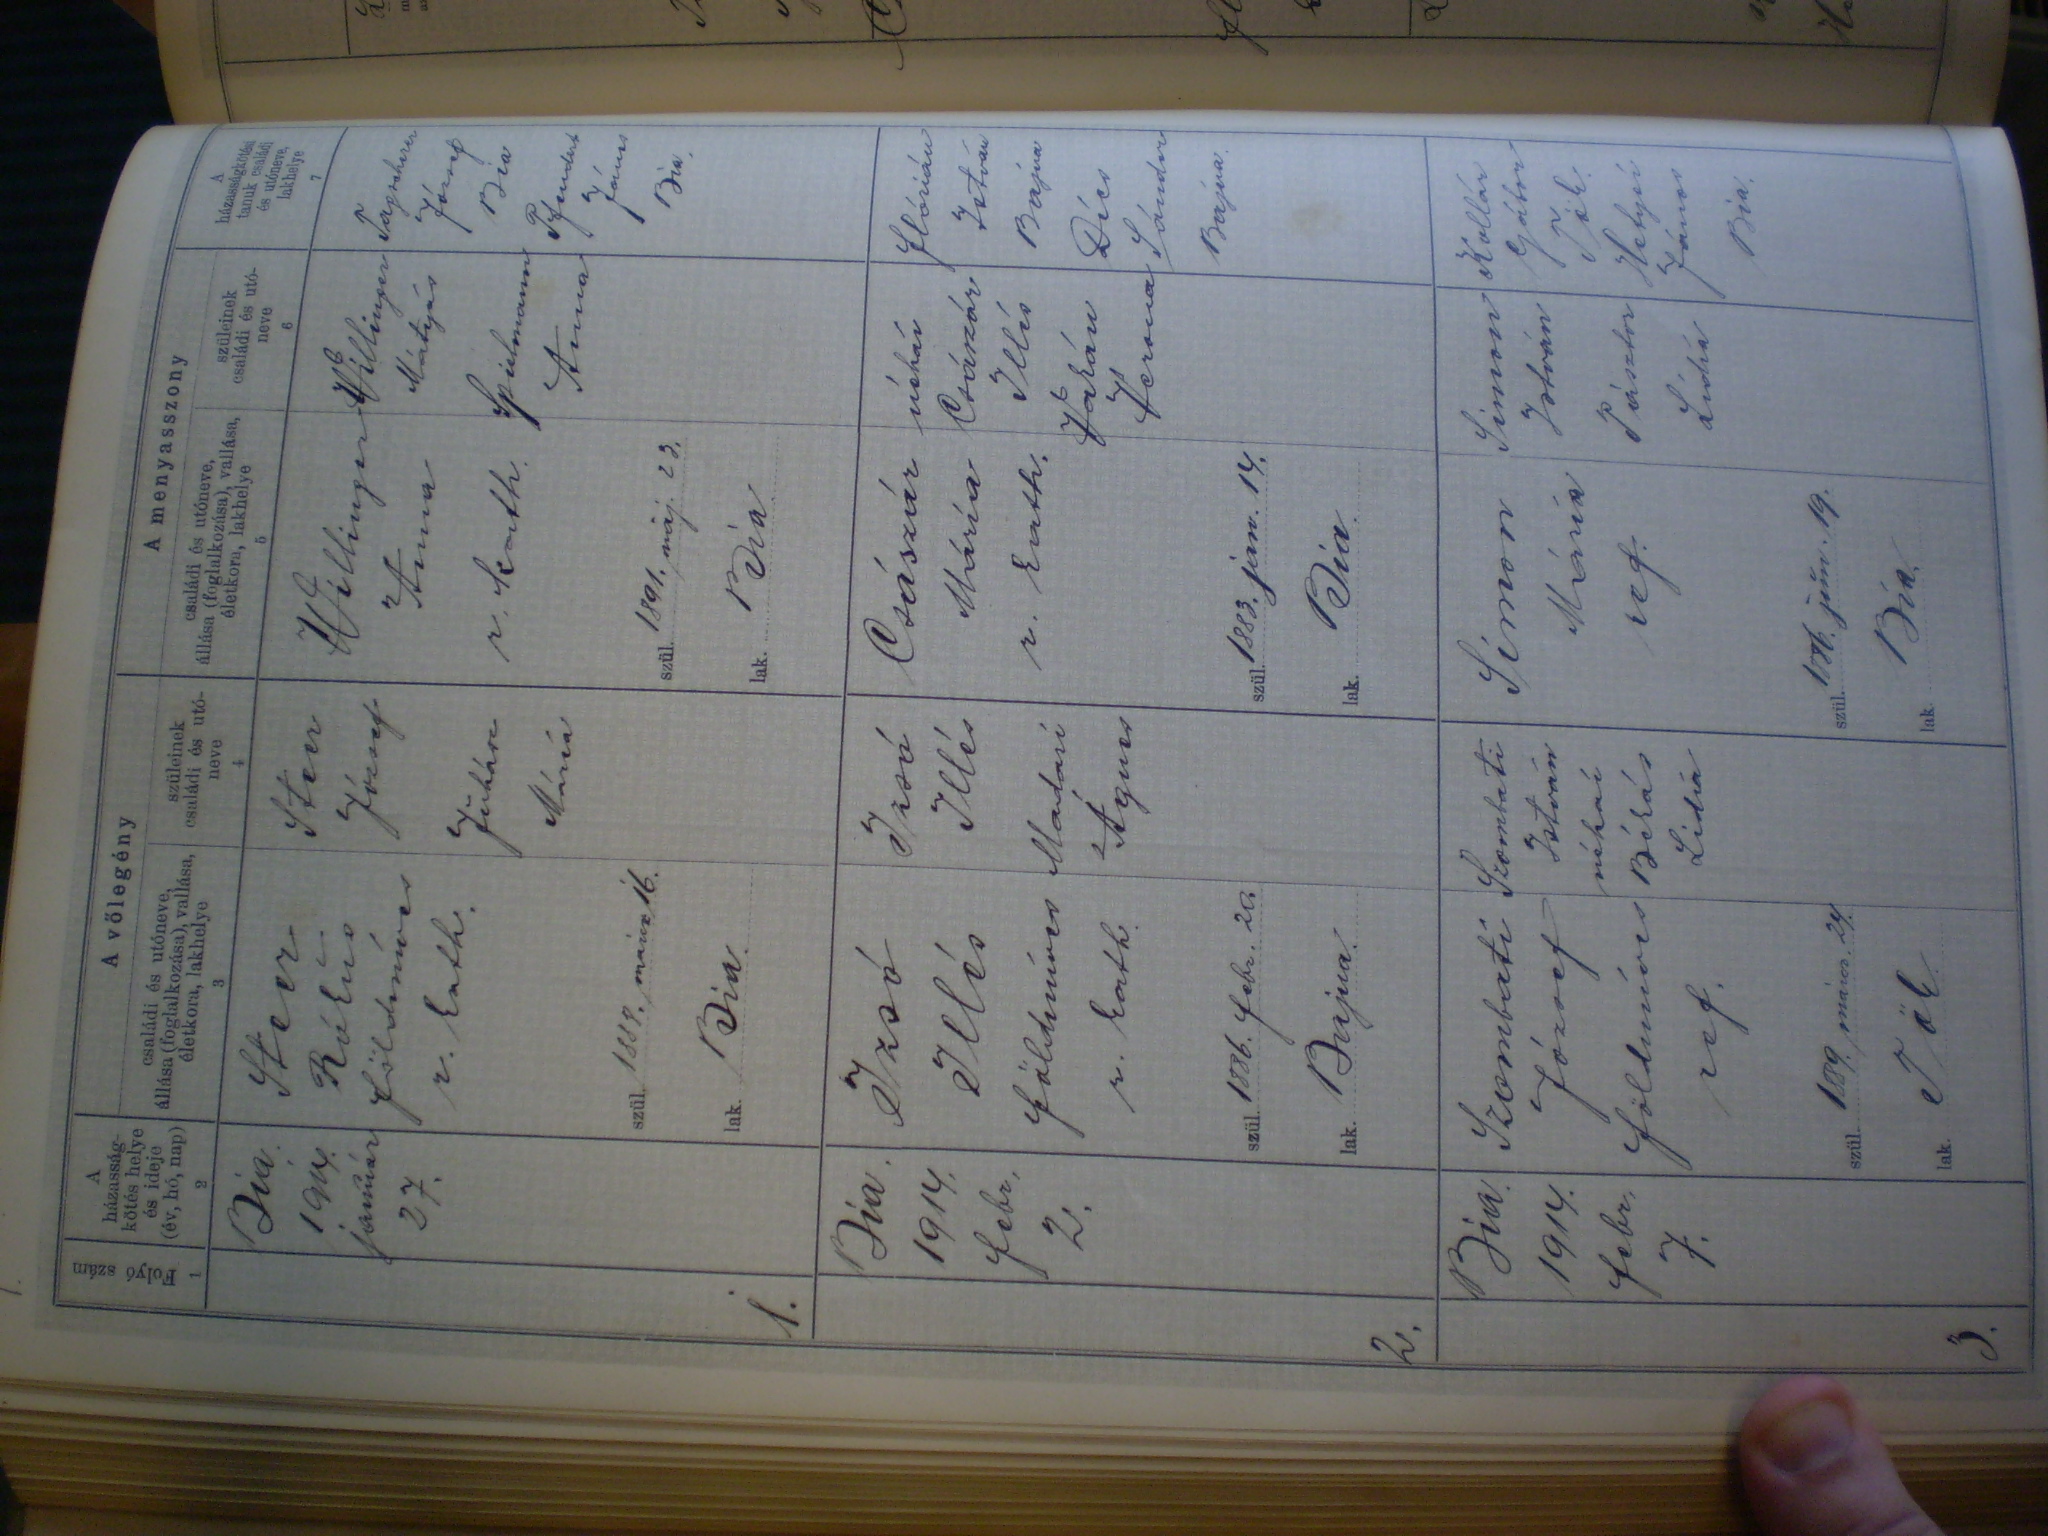 A vőlegény
A menyasszony
Folyó szám
A házasság-
kötés helye
és ideje
(év, hó, nap)
családi és utóneve,
állása (foglalkozása), vallása,
életkora, lakhelye
szüleinek
családi és utó-
neve
családi és utóneve,
állása (foglalkozása), vallása,
életkora, lakhelye
szüleinek
családi és utó-
neve
A
házasságkötési
tanuk családi
és utóneve,
lakhelye
1
2
3
4
5
6
7
1.
Bia.
1914.
január
27.
Ster
Rókus
földmíves
r. kath.
szül. 1888. márcz 16.
lak. Bia.
Ster
József
Juhász
Mária
Willinger
Anna
r. kath.
szül. 1891. máj. 23.
lak. Bia
Willinger
Mátyás
Spielmann
Anna
József
Bia
János
Bia.
2.
Bia.
1914.
febr.
2.
Izsó
Illés
földmíves
r. kath.
szül. 1886. febr. 20.
lak. Bajna.
Izsó
Illés
Madari
Ágnes
Császár
Mária
r. kath.
szül. 1883. jan. 14.
lak. Bia.
néhai
Császár
Illés
Verona
Flórián
István
Bajna
Dics
Sándor
Bajna.
3.
Bia.
1914.
febr.
7.
Szombati
József
földmíves
ref.
szül. 1889. márcz. 24.
lak. Tök
Szombati
István
néhai
Békás
Lidia
Simon
Mária
ref.
szül. 1886. jún. 19.
lak. Bia.
Simon
István
Pásztor
Kollár
Gábor
Tök.
Hetyei
János
Bia.